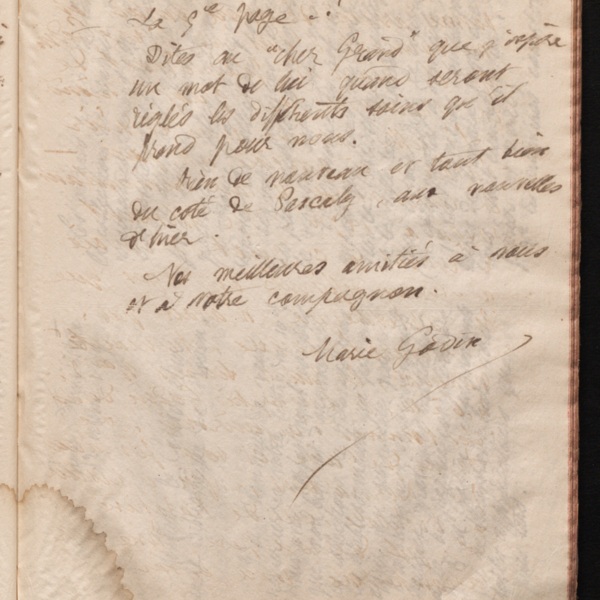 La 5e page ..!
Dites au "cher Grand" que j'espère
un mot de lui quand seront
réglés les différents soins qu'il
prend pour nous.
Rien de nouveau et tout bien
du coté de Pascaly, aux nouvelles
d'hier.
Nos meilleures amitiés à vous
et à votre compagnon.
Marie Godin